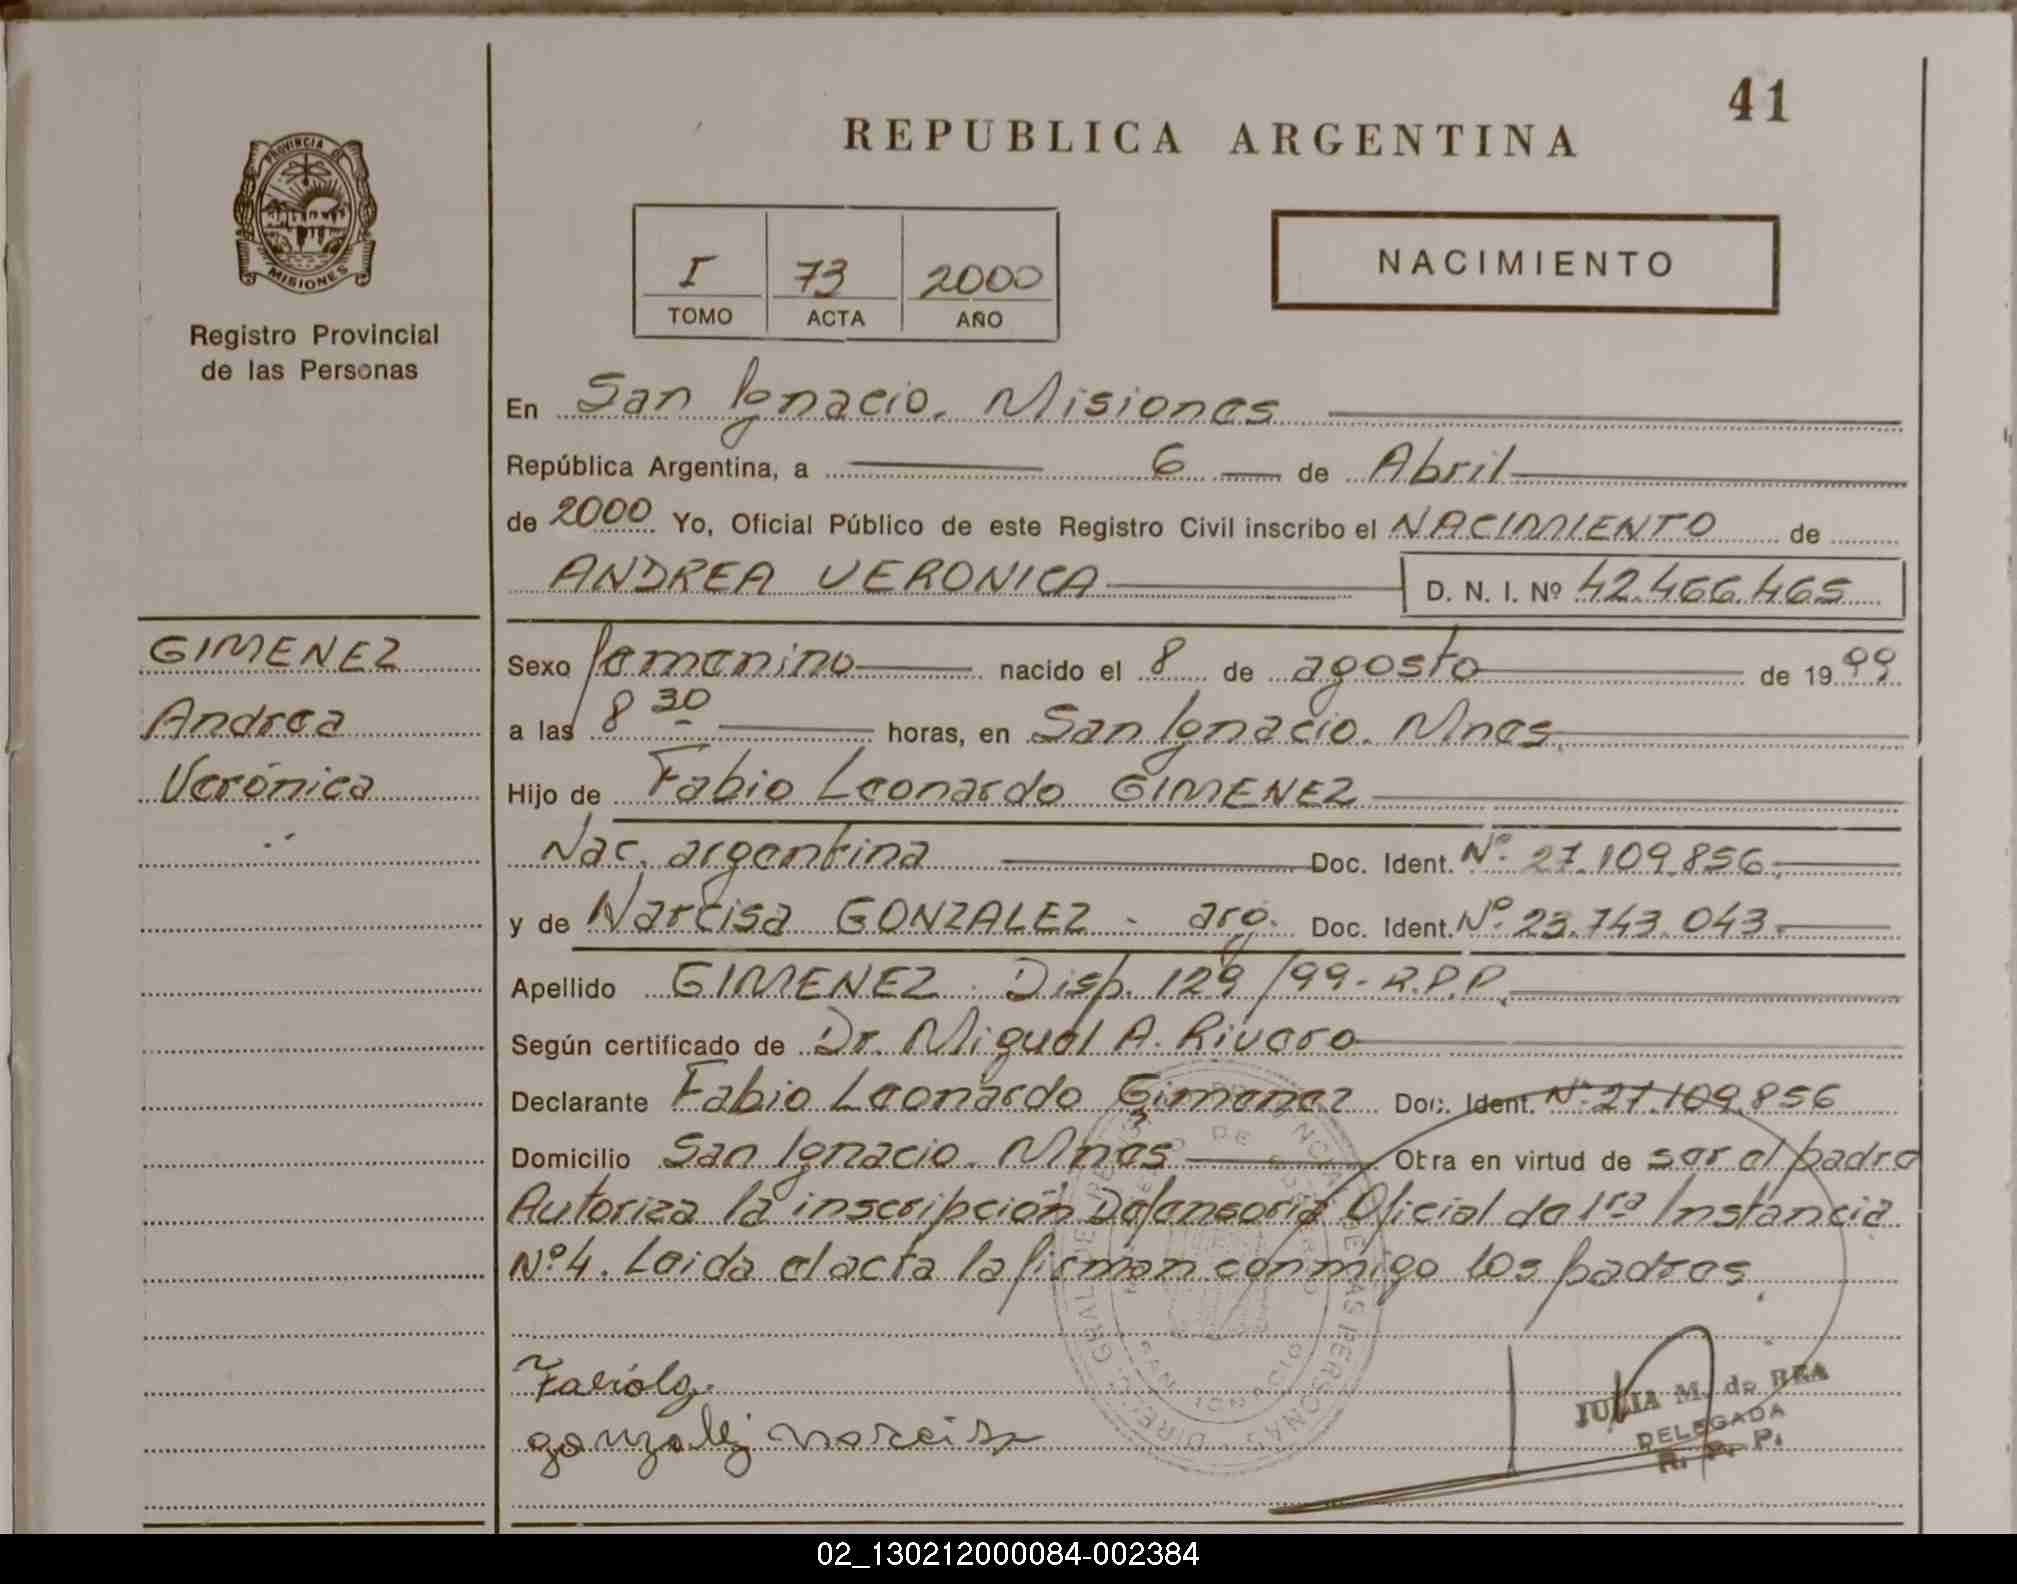 41
REPUBLICA ARGENTINA
PROVINCIA DE
MISIONES
Registro Provincial
de las Personas
I 73 2000
TOMO ACTA AÑO
NACIMIENTO
En San Ignacio. Misiones
República Argentina, a 6 de Abril
de 2000 Yo, Oficial Público de este Registro Civil inscribo el NACIMIENTO de
ANDREA VERONICA D. N. I. Nº 42.466.465
GIMENEZ
Andrea
Verónica
Sexo femenino nacido el 8 de agosto de 1999
a las 8 30 horas, en San Ignacio. Mnes.
Hijo de Fabio Leonardo GIMENEZ
Nac. argentina Doc. Ident. Nº 27.109.856.
y de Narcisa GONZALEZ - arg. Doc. Ident. Nº 23.743.043.
Apellido GIMENEZ. Disp. 129/99-R.P.P.
Según certificado de Dr. Miguel A. Rivero
Declarante Fabio Leonardo Gimenez Doc. Ident. Nº 27.109.856
Domicilio San Ignacio. Mnes Otra en virtud de ser el padre
Autoriza la inscripción Defensoria Oficial de 1ra Instancia
Nº 4. Leida el acta la firman conmigo los padres.
gonzalez narcisa
JULIA M. de REA
DELEGADA
R. P. P.
SAN IGNACIO
02_130212000084-002384